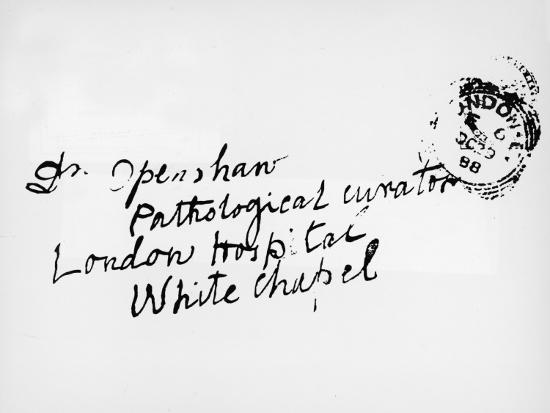 LONDON·E.
6
OC29
88
Dr. Openshaw
Pathological curator
London Hospital
White chapel